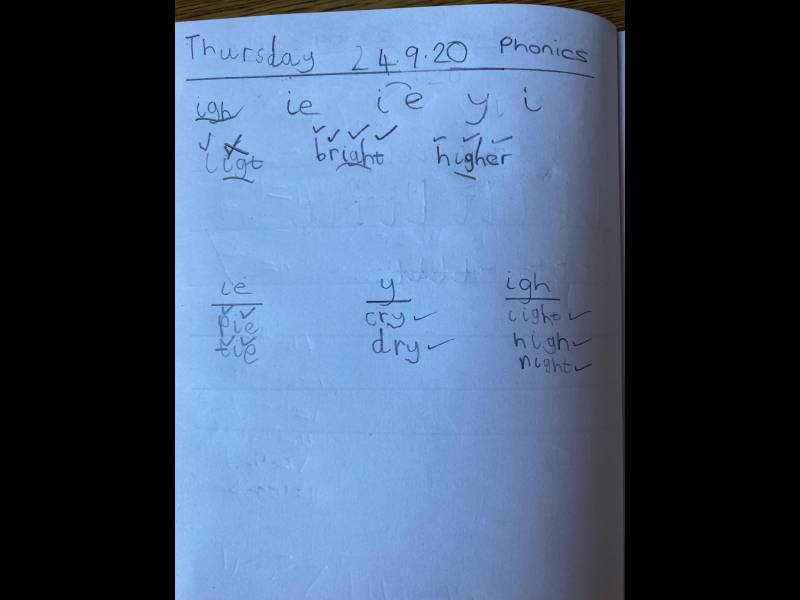 Thursday 24.9.20 Phonics
igh ie i e y i
ligt bright higher
ie y igh
pie cry light
tie dry high
night